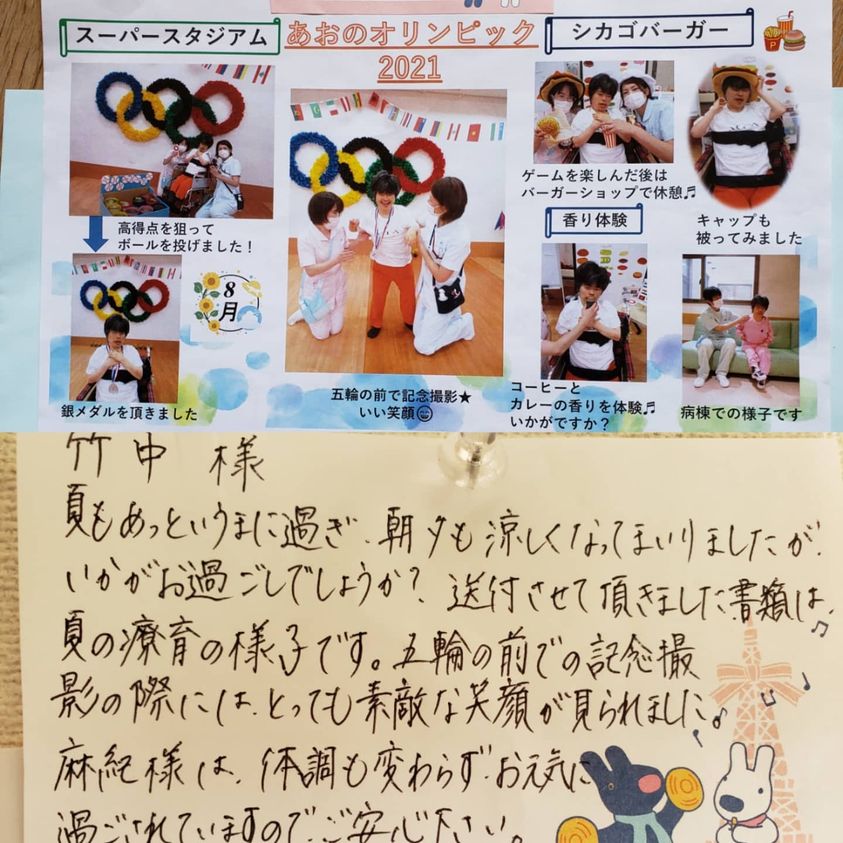 スーパースタジアム
あおのオリンピック
2021
シカゴバーガー
高得点を狙って
ボールを投げました！
8
月
銀メダルを頂きました
五輪の前で記念撮影★
いい笑顔😄
ゲームを楽しんだ後は
バーガーショップで休憩♬
キャップも
被ってみました
香り体験
コーヒーと
カレーの香りを体験♬
いかがですか？
病棟での様子です
竹中 様
夏もあっというまに過ぎ、朝夕も涼しくなってまいりましたが、
いかがお過ごしでしょうか？ 送付させて頂きました書類は、
夏の療育の様子です。五輪の前での記念撮
影の際には、とっても素敵な笑顔が見られました。
麻紀様は、体調も変わらず、お元気に
過ごされていますので、ご安心下さい。